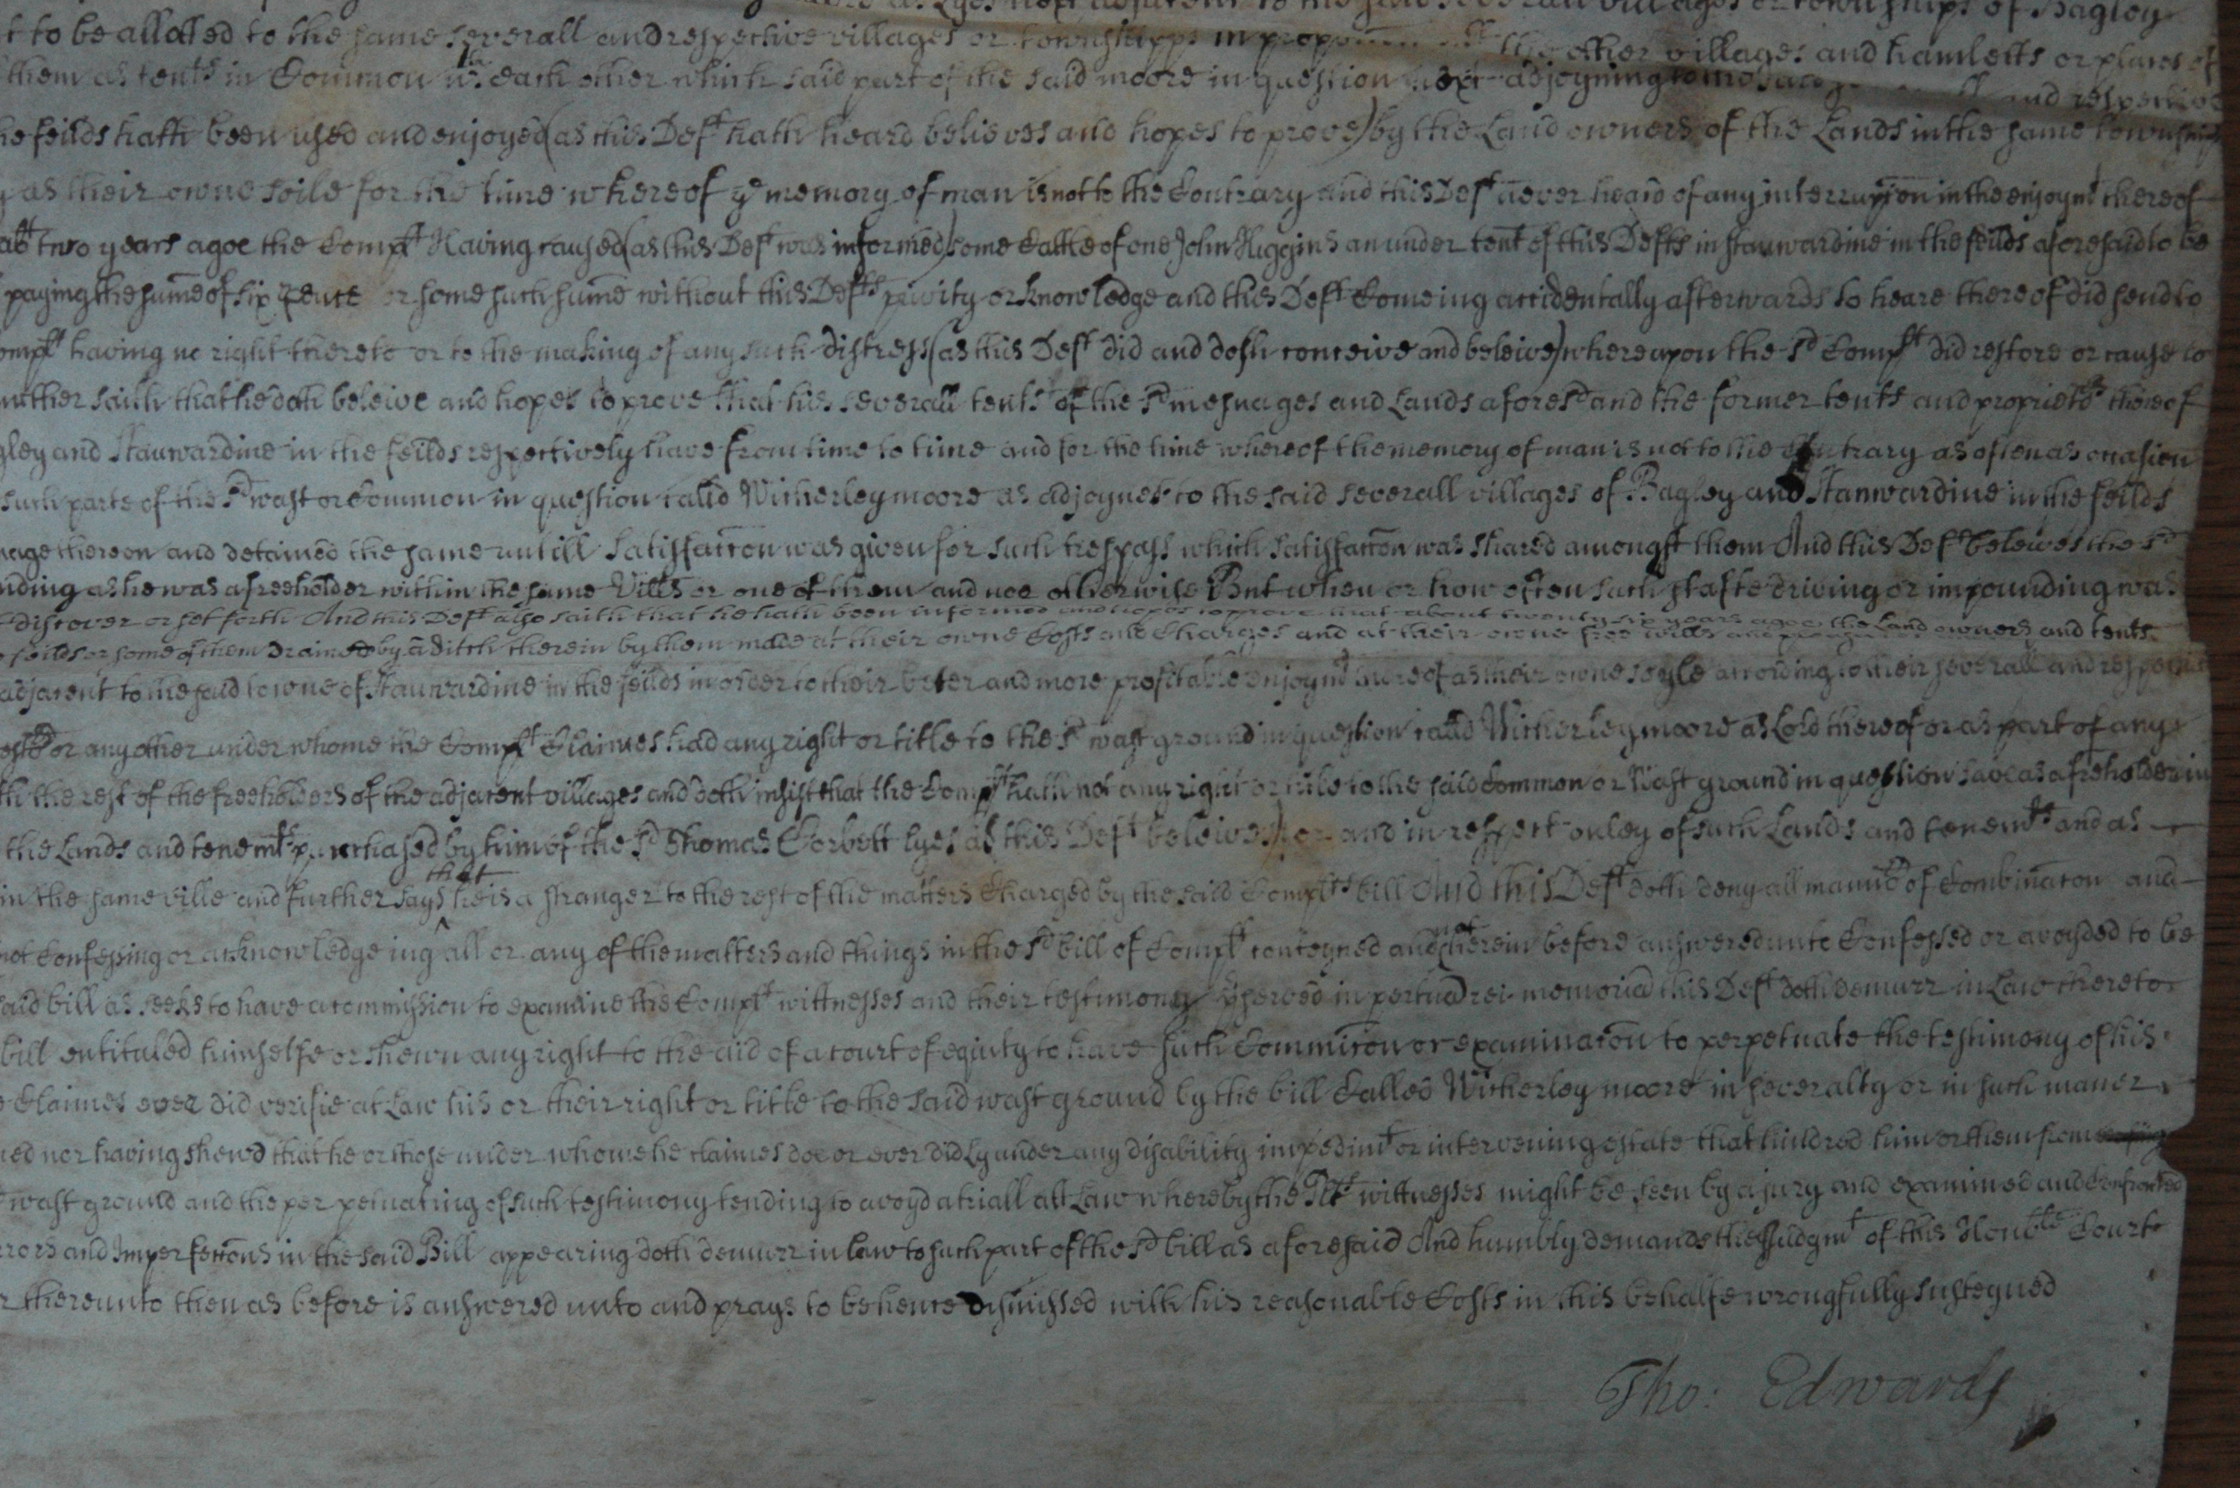 to the said severall villages or townshipps of Bagley
t to be allated to the same severall and respective villages or townshipps in the other villages and hamletts or places of
them as tents in Common wth each other which said part of the said moore in question next adjoyning to and respective
he feilds hath been used and enjoyed (as this Deft hath heard believes and hopes to prove) by the Land owners of the Lands in the same townshipp
as their owne soile for the time whereof ye memory of man is not to the Contrary And this Deft never heard of any interrupcon in the enjoymt thereof
abt two years agoe the Complt Having caused (as this Deft was informed) some Cattle of one John Higgins an under tent of this Defts in Stanwardine in the feilds aforesaid to be
paying the sume of six pence or some such sume without this Defts privity or knowledge and this Deft Comeing accidentally afterwards to heare thereof did send to
omplt having no right thereto or to the making of any such distress (as this Deft did and doth conceive and beleive) whereupon the sd Complt did restore or cause to
urther saith that he doth beleive and hopes to prove that his severall tents of the sd mesuages and Lands aforesd and the former tents and proprietrs thereof
gley and Stanwardine in the feilds respectively have from time to time and for the time whereof the memory of man is not to the Contrary as often as occasion
such parte of the sd wast or Common in question called Witherley moore as adjoynes to the said severall villages of Bagley and Stanwardine in the feilds
mage thereon and detained the same untill Satisfaccon was given for such trespass which satisfaccon was shared amongst them And this Deft beleives the sd
nding as he was a freeholder within the same Vills or one of them and noe otherwise But when or how often such driving or impounding was
discover or set forth And this Deft also saith that he hath been informed and hopes to prove that about twenty six years agoe the Land owners and tents
feilds or some of them drained by a ditch therein by them made at their owne Costs and Charges and at their owne free wills and
adjacent to the said towne of Stanwardine in the feilds in order to their better and more profitable enjoymt thereof as their owne soyle according to their severall and respective
or any other under whome the Complt Claimes had any right or title to the sd wast ground in question called Witherley moore as Lord thereof or as part of any
th the rest of the freeholders of the adjacent villages and doth insist that the Complt hath not any right or title to the said Common or Wast ground in question save as a freeholder in
the Lands and tenemts purchased by him of the sd Thomas Corbett lyes as this Deft beleives) or and in respect onley of such Lands and tenemts and as
in the same ville and further says that he is a stranger to the rest of the matters Charged by the said Complts bill And this Deft doth deny all manner of Combinacon and
not Confessing or acknowledgeing all or any of the matters and things in the sd bill of Complt conteyned and not herein before answered unto Confessed or avoyded to be
said bill as seeks to have a commission to examine the Complts wittnesses and their testimony pserved in perpetuam rei memoriam this Deft doth demurr in Law thereto
bill entituled himselfe or shewn any right to the aid of a court of equity to have such Commicon or examinacon to perpetuate the testimony of his
Claimes ever did verifie at Law his or their right or title to the said wast ground by the bill Called Witherley moore in severalty or in such maner
ed nor having shewd that he or those under whome he claimes doe or ever did Ly under any disability impedimt or intervening estate that hindred him or them from
wast ground and the perpetuating of such testimony tending to avoyd a triall att Law whereby the Plts wittnesses might be seen by a jury and examined and Confronted
rrors and Imperfeccons in the said Bill appearing doth demurr in law to such part of the sd bill as aforesaid And humbly demands the Judgmt of this Honoble Court
r thereunto then as before is answered unto and prays to be hence dismissed with his reasonable Costs in this behalfe wrongfully susteyned
Tho: Edwards